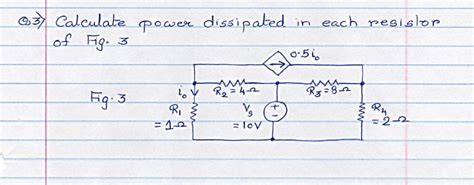 Q3) Calculate power dissipated in each resistor
of Fig. 3
0.5i₀
Fig. 3
i₀
R₂=4Ω
R₃=8Ω
R₁
=1Ω
Vs
=10V
+
-
R₄
=2Ω